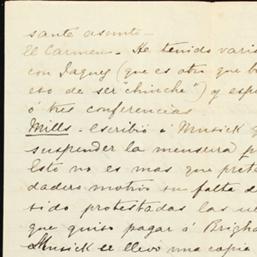 sante asunto.—
El Carmen.— He tenido varia
con Jaques (que es otro que b
eso de ser "chinche") y esp
ó tres conferencias
Mills.— Escribió á Musick q
suspender la mensura p
Esto no es mas que prete
dadero motivo su falta d
sido protestadas las
que quiso pagar á Brigha
Musick se llevó una copia